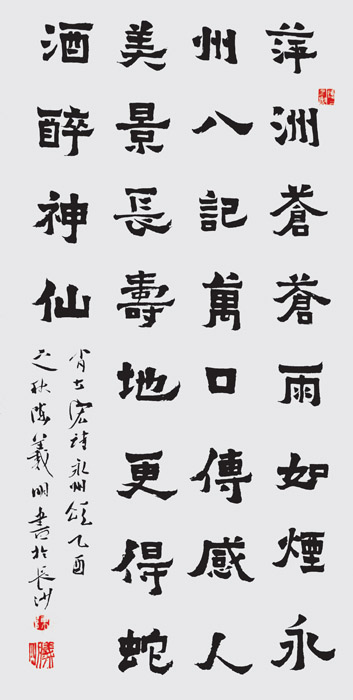 萍洲蒼蒼雨如煙永
州八記萬口傳感人
美景長壽地更得蛇
酒醉神仙
肖宏詩永州頌乙酉
之秋陳羲明書於長沙